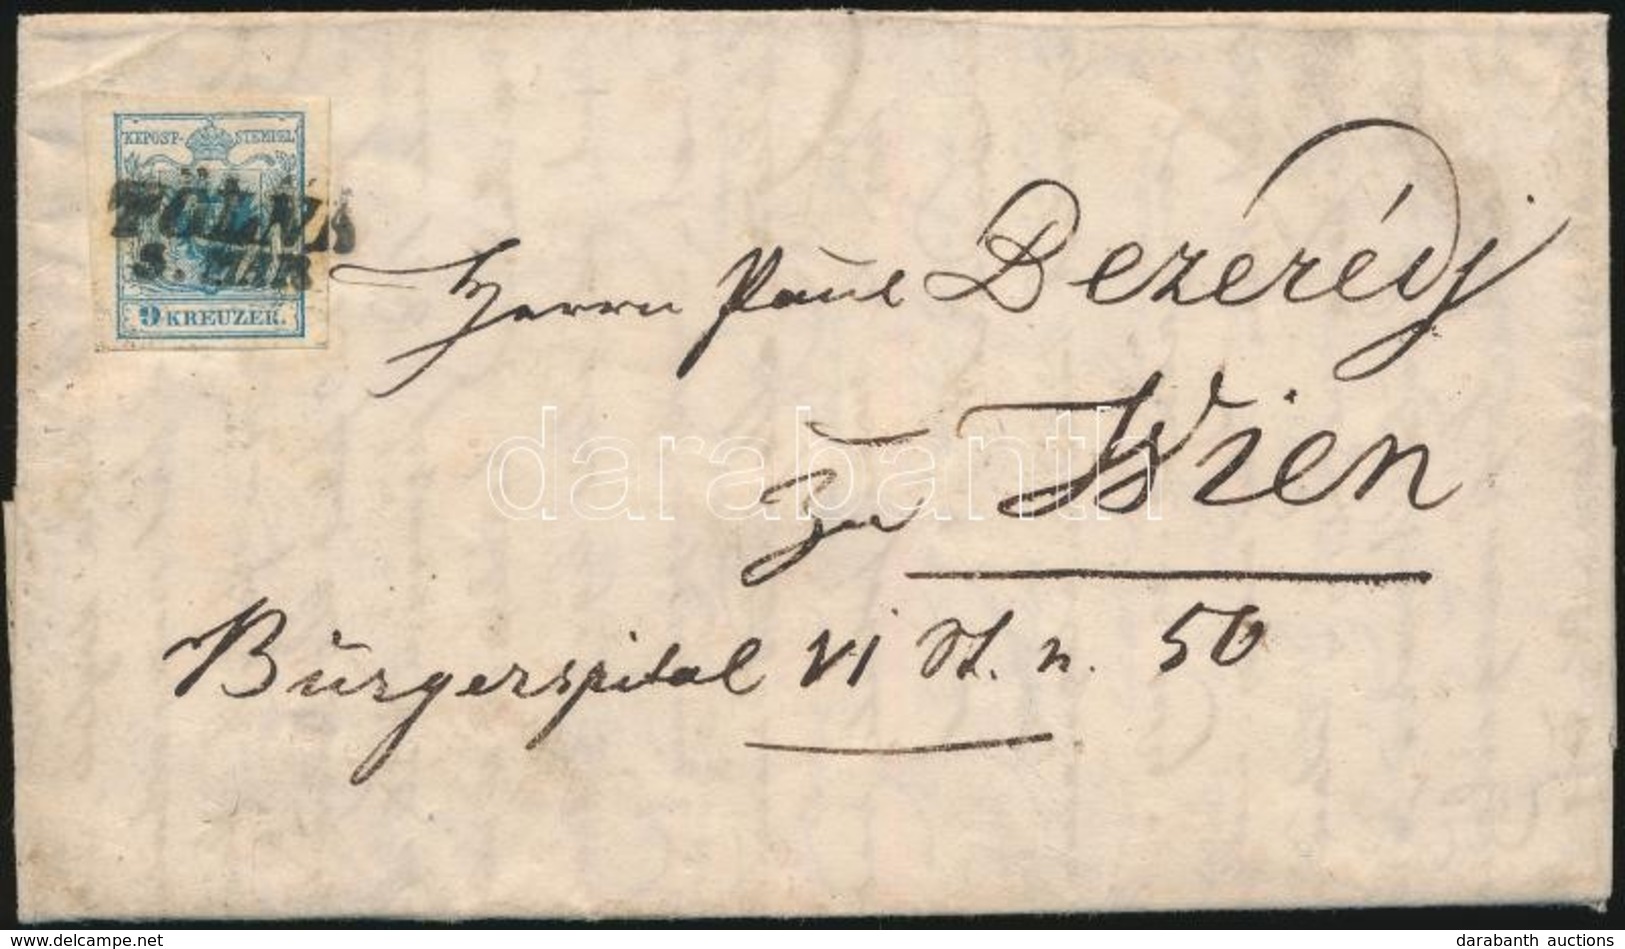 KKPOST-STEMPEL
TOLNA
8. MÄR
9 KREUZER.
Herrn Paul Bezerédj
zu Wien
Bürgerspital VI St. n. 50
darabanth
delcampe.net
darabanth auctions